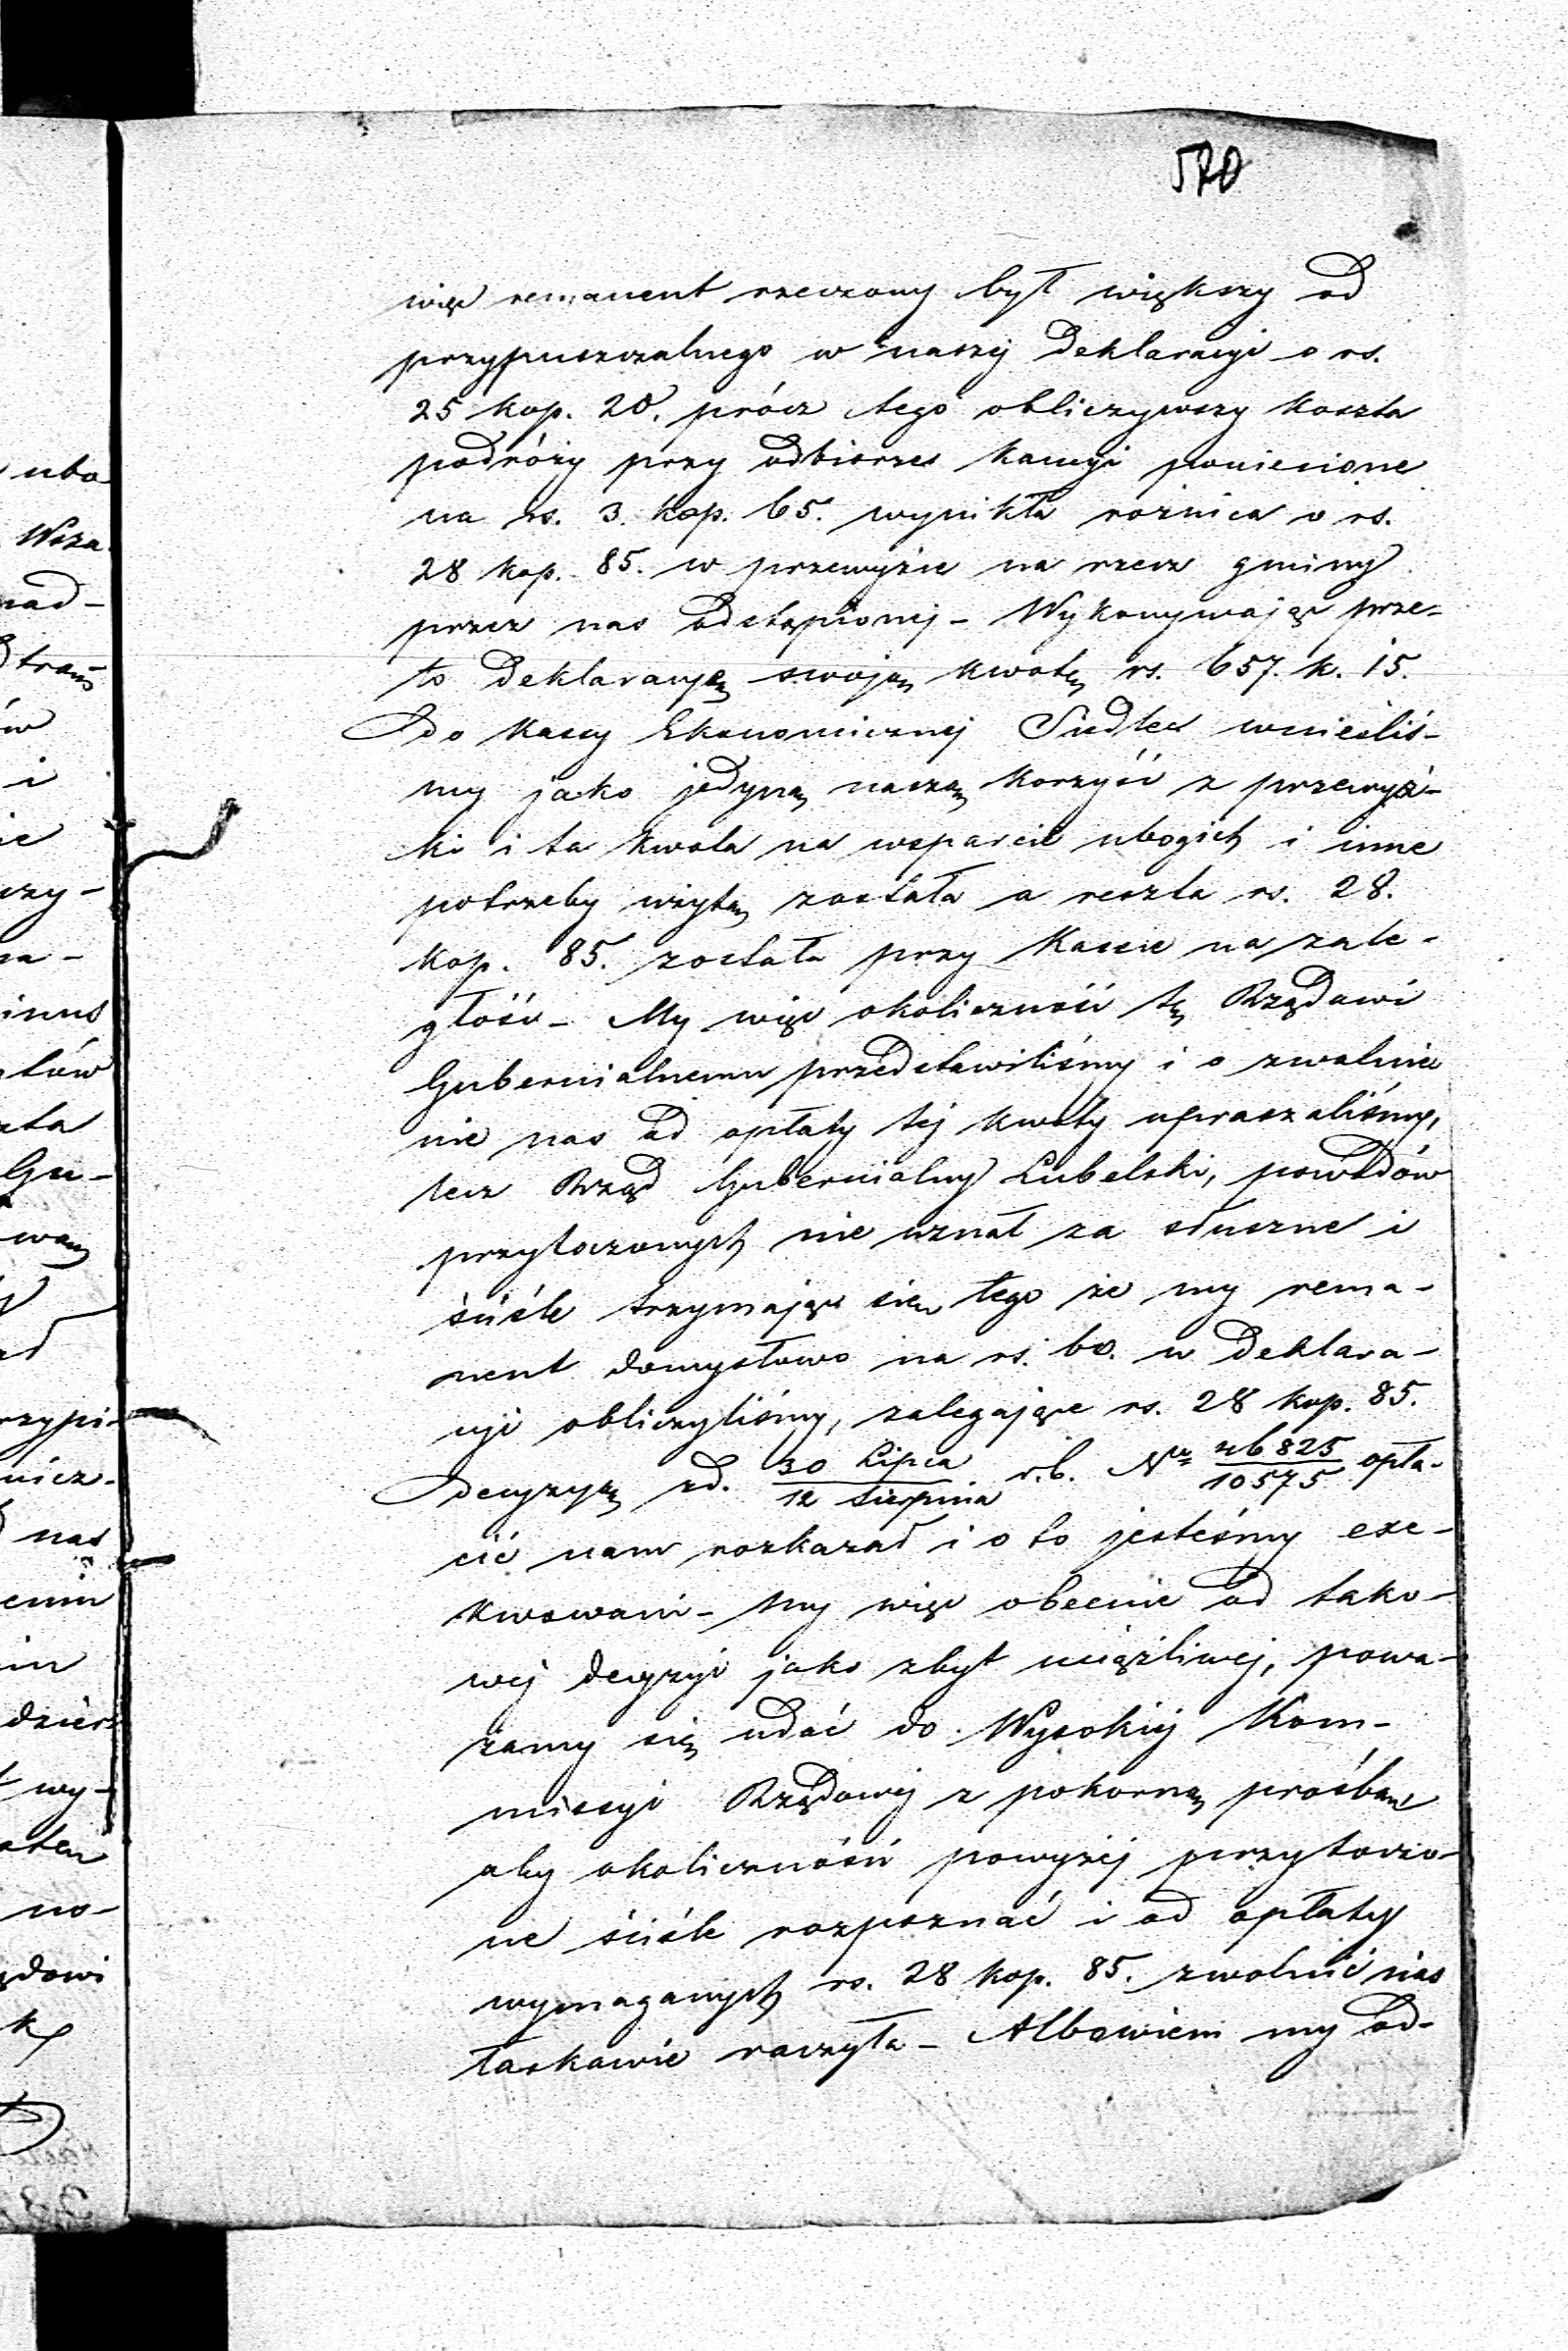 570
więc remanent rzeczony był większy od
przypuszczalnego w naszéj Deklaracyi o rs.
25 kop. 20. prócz tego obliczywszy koszta
podróży przy odbiorze kaucyi poniesione
na rs. 3. kop. 65. wynikła rożnica o rs.
28 kop. 85. w przewyżce na rzecz gminy
przez nas odstąpionej – Wykonywając prze-
to Deklaracyę swoją kwotę rs. 657. k. 15.
do kassy Ekonomicznej Siedlec wnieśliś-
my jako jedyną naszą korzyść z przewyż-
ki i ta kwota na wsparcie ubogich i inne
potrzeby użytą została a reszta rs. 28.
kop. 85. została przy Kassie na zale-
głość – My więc okoliczność tę Rządowi
Gubernialnemu przedstawiliśmy i o zwolnie
nie nas od opłaty téj kwoty upraszaliśmy,
lecz Rząd Gubernialny Lubelski, powodów
przytoczonych nie uznał za słuszne i
ściśle trzymając się tego że my rema-
nent domysłowo na rs. 60. w Deklara-
cyi obliczyliśmy, zalegające rs. 28 kop. 85.
decyzyą zd. 30 Lipca / 12 Sierpnia r.b. Nr 26825 / 10575 opła-
cić nam rozkazał i o to jesteśmy exe-
kwowani – my więc obecnie od tako-
wéj decyzyi jako zbyt uciążliwej, powa-
żamy się udać do Wysokiéj Kom-
missyi Rządowéj z pokorną prośbą
aby okoliczność powyżéj przytoczo-
ne ściśle rozpoznać i od opłaty
wymaganych rs. 28 kop. 85. zwolnić nas
łaskawie raczyła – Albowiem my od-
ubo
Wsza
nad-
ów
i
czy-
Gu-
rzypi-
nicz-
nas
wy-
no-